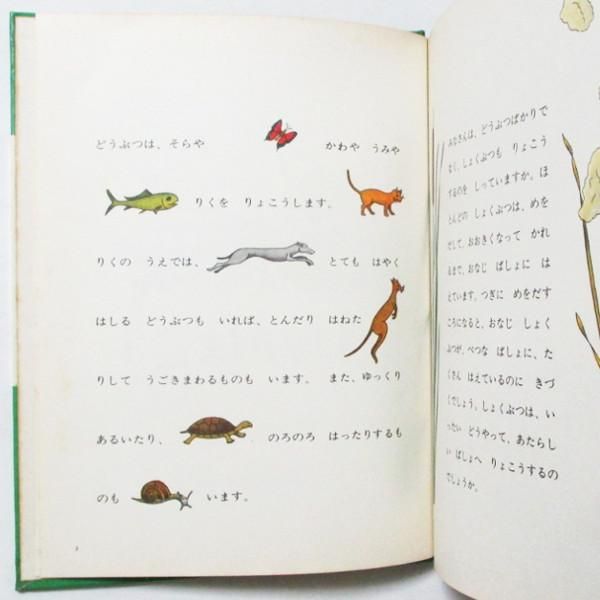 どうぶつは、そらや かわや うみや
りくを りょこうします。
りくの うえでは、 とても はやく
はしる どうぶつも いれば、とんだり はねた
りして うごきまわるものも います。 また、ゆっくり
あるいたり、 のろのろ はったりするも
のも います。
みなさんは、どうぶつばかりで
なく、しょくぶつも りょこう
するのを しっていますか。ほ
とんどの しょくぶつは、めを
だして、おおきくなって かれ
るまで、おなじ ばしょに は
えています。つぎに めをだす
ころになると、おなじ しょく
ぶつが、べつな ばしょに、た
くさん はえているのに きづ
くでしょう。しょくぶつは、い
ったい どうやって、あたらし
い ばしょへ りょこうするの
でしょうか。